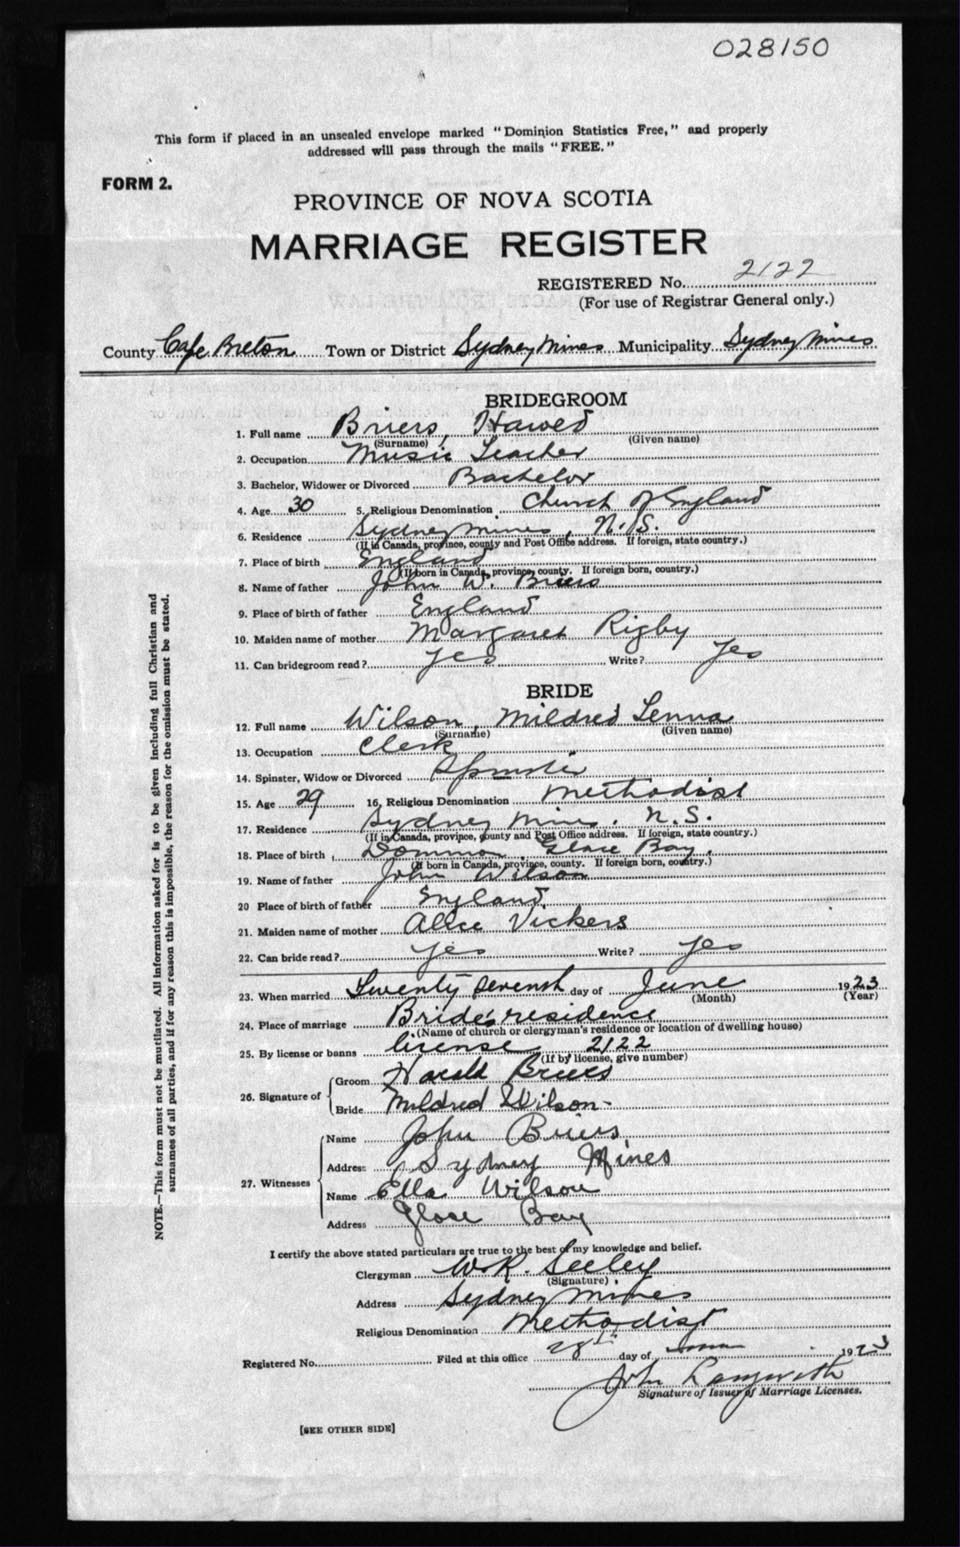 028150
This form if placed in an unsealed envelope marked "Dominion Statistics Free," and properly
addressed will pass through the mails "FREE."
FORM 2.
PROVINCE OF NOVA SCOTIA
MARRIAGE REGISTER
REGISTERED No. 2122
(For use of Registrar General only.)
County Cape Breton Town or District Sydney Mines Municipality Sydney Mines
BRIDEGROOM
1. Full name Briers,
(Surname) (Given name)
2. Occupation Music Teacher
3. Bachelor, Widower or Divorced Bachelor
4. Age 30 5. Religious Denomination Church of England
6. Residence Sydney Mines, N.S.
(If in Canada, province, county and Post Office address. If foreign, state country.)
7. Place of birth England
(If born in Canada, province, county. If foreign born, country.)
8. Name of father John W. Briers
9. Place of birth of father England
10. Maiden name of mother Margaret Rigby
11. Can bridegroom read? yes Write? Yes
BRIDE
12. Full name Wilson, Mildred Lenna
(Surname) (Given name)
13. Occupation Clerk
14. Spinster, Widow or Divorced Spinster
15. Age 29 16. Religious Denomination Methodist
17. Residence Sydney Mines. N.S.
(If in Canada, province, county and Post Office address. If foreign, state country.)
18. Place of birth Dominion Glace Bay.
(If born in Canada, province, county. If foreign born, country.)
19. Name of father John Wilson
20 Place of birth of father England.
21. Maiden name of mother Alice Vickers
22. Can bride read? yes Write? yes
23. When married Twenty sevenst day of June 1923
(Month) (Year)
24. Place of marriage Bride's residence
(Name of church or clergyman's residence or location of dwelling house)
25. By license or banns license 2122
(If by license, give number)
26. Signature of Groom Harold Briers
Bride Mildred Wilson-
27. Witnesses Name John Briers
Address Sydney Mines
Name Ella Wilson
Address Glace Bay
I certify the above stated particulars are true to the best of my knowledge and belief.
Clergyman W.R. Seeley
(Signature)
Address Sydney Mines
Religious Denomination Methodist
Registered No. Filed at this office 28th day of 1923
John
Signature of Issuer of Marriage Licenses.
[SEE OTHER SIDE]
NOTE.—This form must not be mutilated. All information asked for is to be given including full Christian and
surnames of all parties, and if for any reason this is impossible, the reason for the omission must be stated.